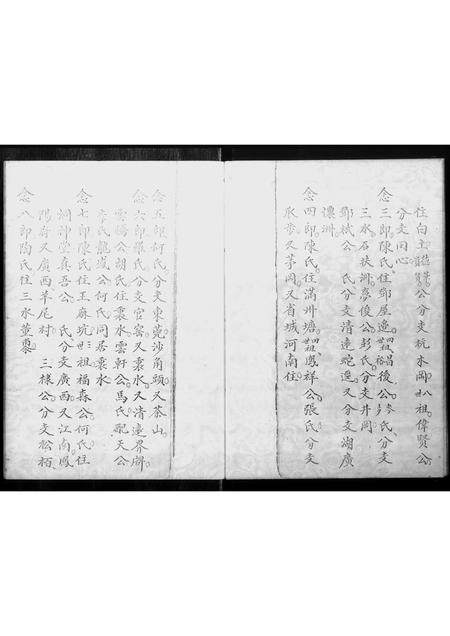 住白土 公分支杭本岡 八祖偉賢公
分支田心
念三郎陳氏住鄧屋邊 祖昌後公 氏分支
三水石扶洲夢俊公彭氏分支井岡
鄧栻公 氏分支清遠蛇邊又分支湖廣
澧洲
念四郎陳氏住滿州塘 祖鳳祥公張氏分支
步又茅岡又省城河南住
念五郎何氏分支東莞沙角頭又茶山
念六郎羅氏分支官窑又裏水又清遠界牌
雲楊公胡氏住裏水雲軒公馬氏配天公
李氏龍威公何氏同居裏水
念七郎陳氏住王麻坑 祖福森公何氏住
洞神堂真吾公 氏分支廣西又江南鳳
陽府又廣西羊尾村 三樣公分支松栢
念八郎陶氏住三水董